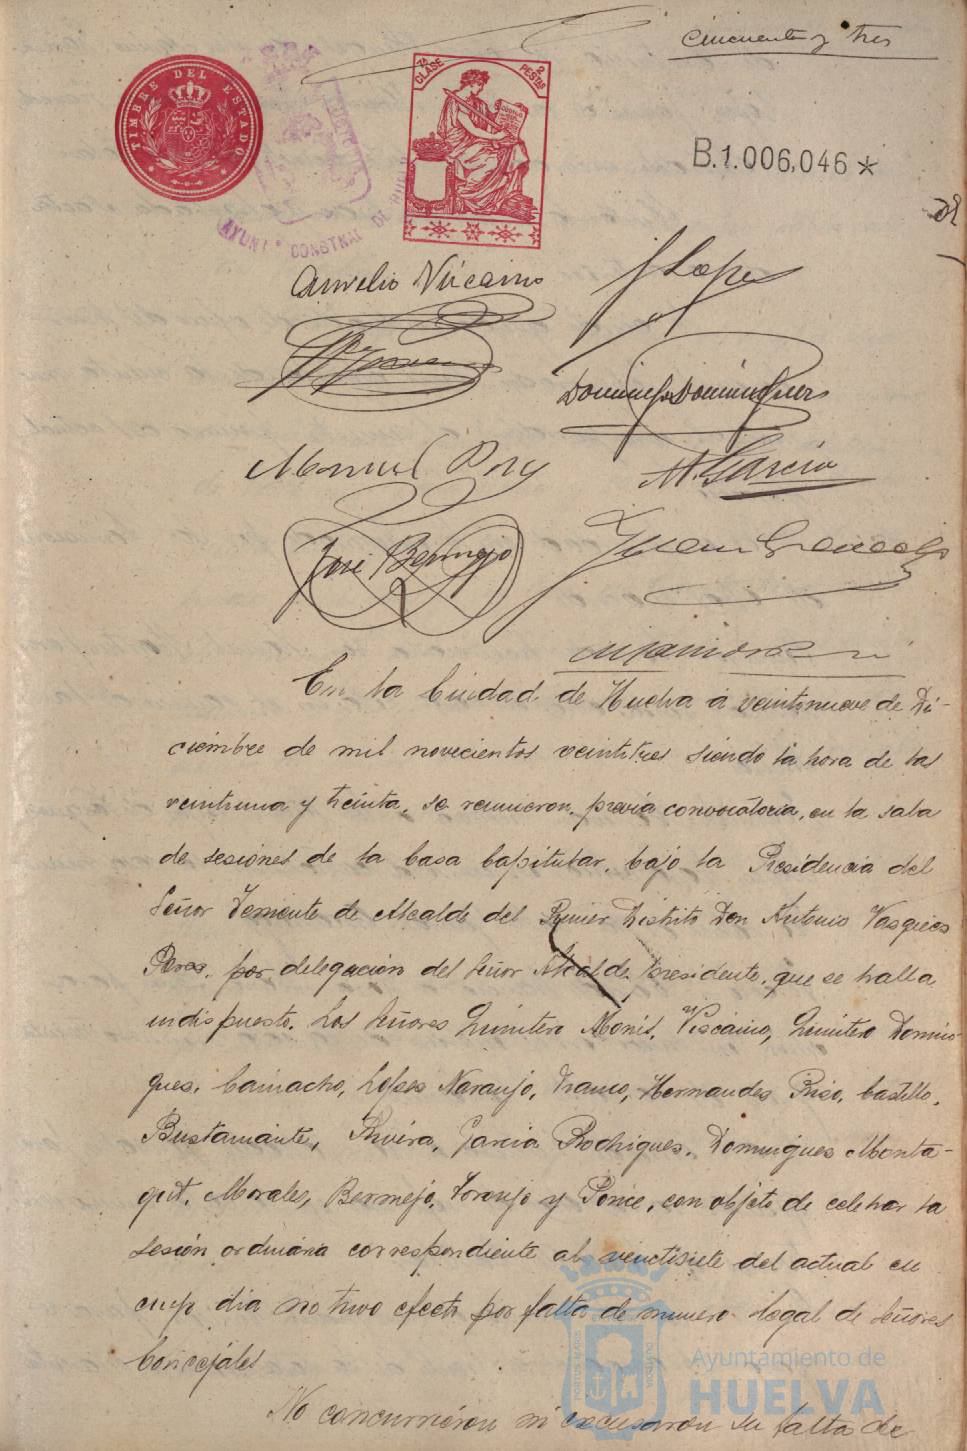 cincuenta y tres
TIMBRE DEL ESTADO
7ª CLASE 2 PESTAS
B.1.006,046 *
AYUNTº CONSTNAL DE HUELVA
Aurelio Viscaino
J Lopez
Domingo Dominguez
Manuel Pozg
A. Garcia
José Bermejo
Juan
En la Ciudad de Huelva á veintinueve de Di-
ciembre de mil novecientos veintitres siendo la hora de las
veintiuna y treinta, se reunieron, previa convocatoria, en la sala
de sesiones de la Casa Capitular, bajo la Presidencia del
Señor Teniente de Alcalde del Primer Distrito Don Antonio Vasques
Peres, por delegación del Señor Alcalde Presidente, que se halla
indispuesto. Los Señores Quintero Monis, Viscaino, Quintero Domin-
gues, Camacho, Lopes Naranjo, Franco, Hernandes Riso, Castillo,
Bustamante, Rivera, Garcia Rodrigues, Domingues Monta-
gut, Morales, Bermejo, Toronjo y Ponce, con objeto de celebrar la
sesión ordinaria correspondiente al veintisiete del actual en
cuyo dia no tuvo efecto por falta de numero legal de Señores
Concejales
No concurrieron ni excusaron su falta de
Ayuntamiento de
HUELVA